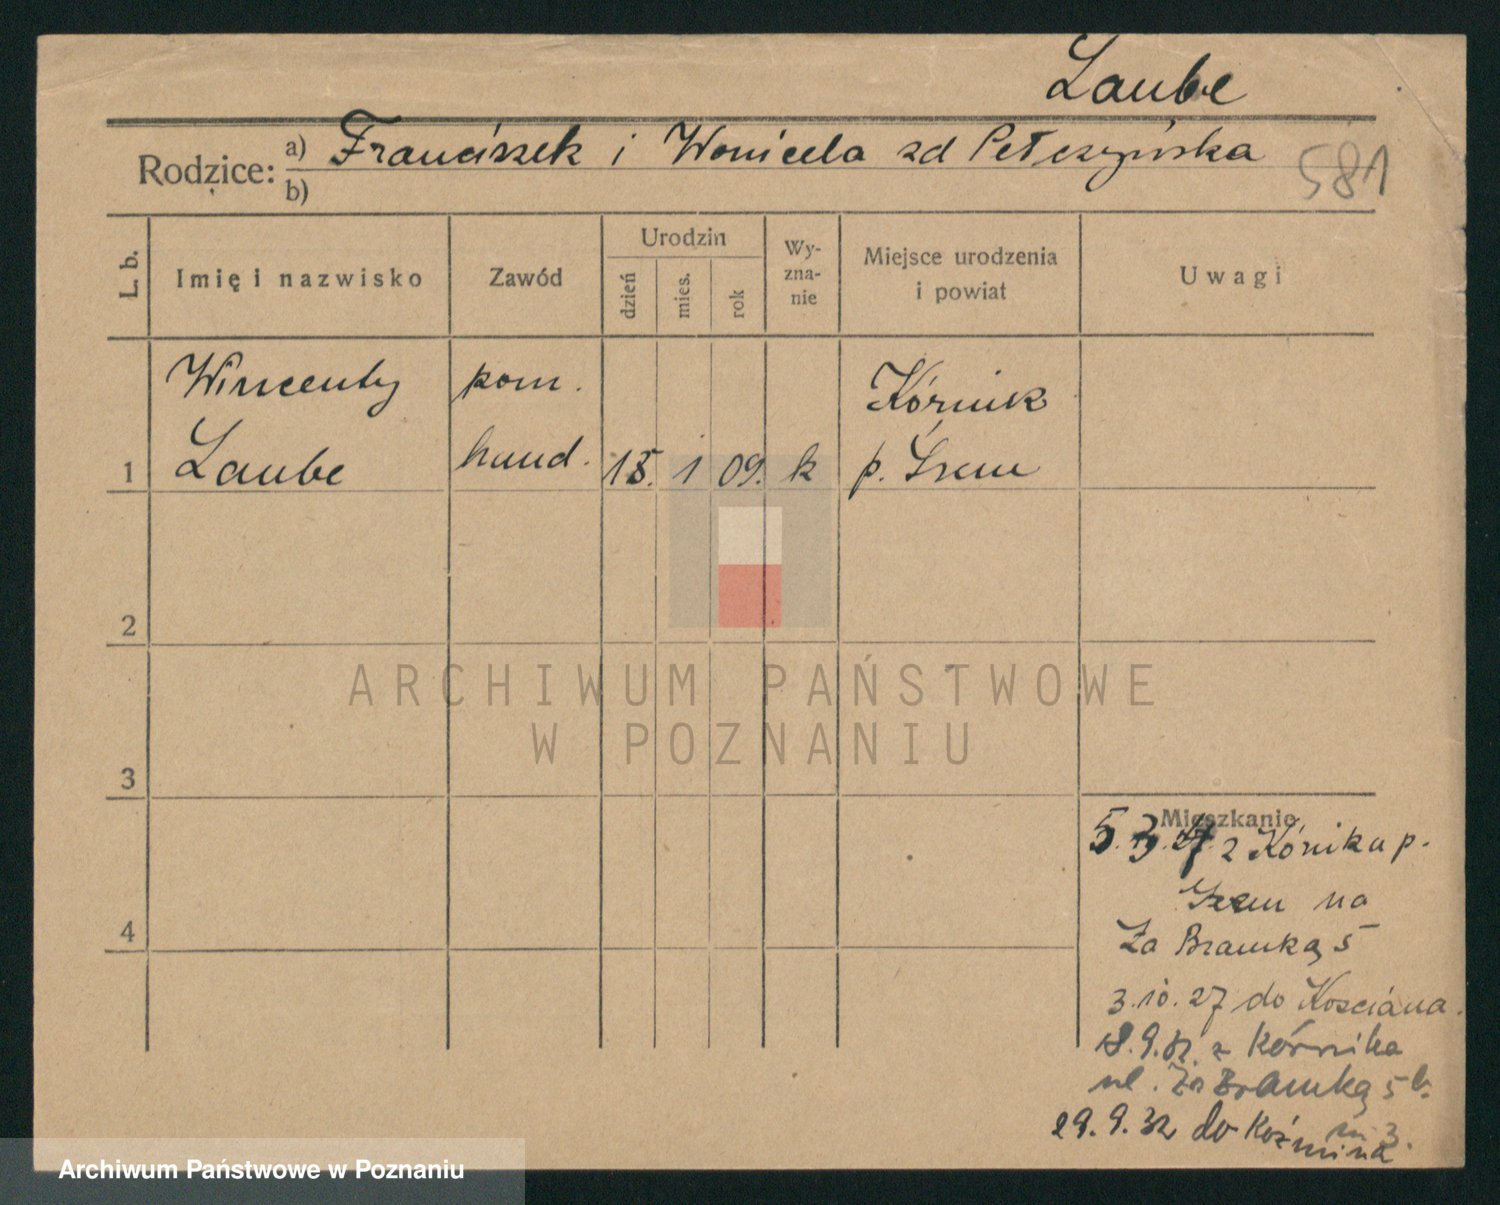 Laube
Rodzice: a) Franciszek i Wonicela zd Petczyńska 581
b)
L. b. Imię i nazwisko Zawód Urodzin dzień mies. rok Wy-zna-nie Miejsce urodzenia i powiat Uwagi
Wincenty kom. Kórnik
1 Laube hand. 15. 1 09. k p. Śrem
2
ARCHIWUM PAŃSTWOWE
W POZNANIU
3
Mieszkanie
5. 3. 27 z Kórnika p.
Śrem na
4 Za Bramką 5
3.10.27 do Kościana.
18.9.32 z Kórnika
ul. Za Bramką 5 b.
m 3.
29.9.32 do Koźmina
Archiwum Państwowe w Poznaniu